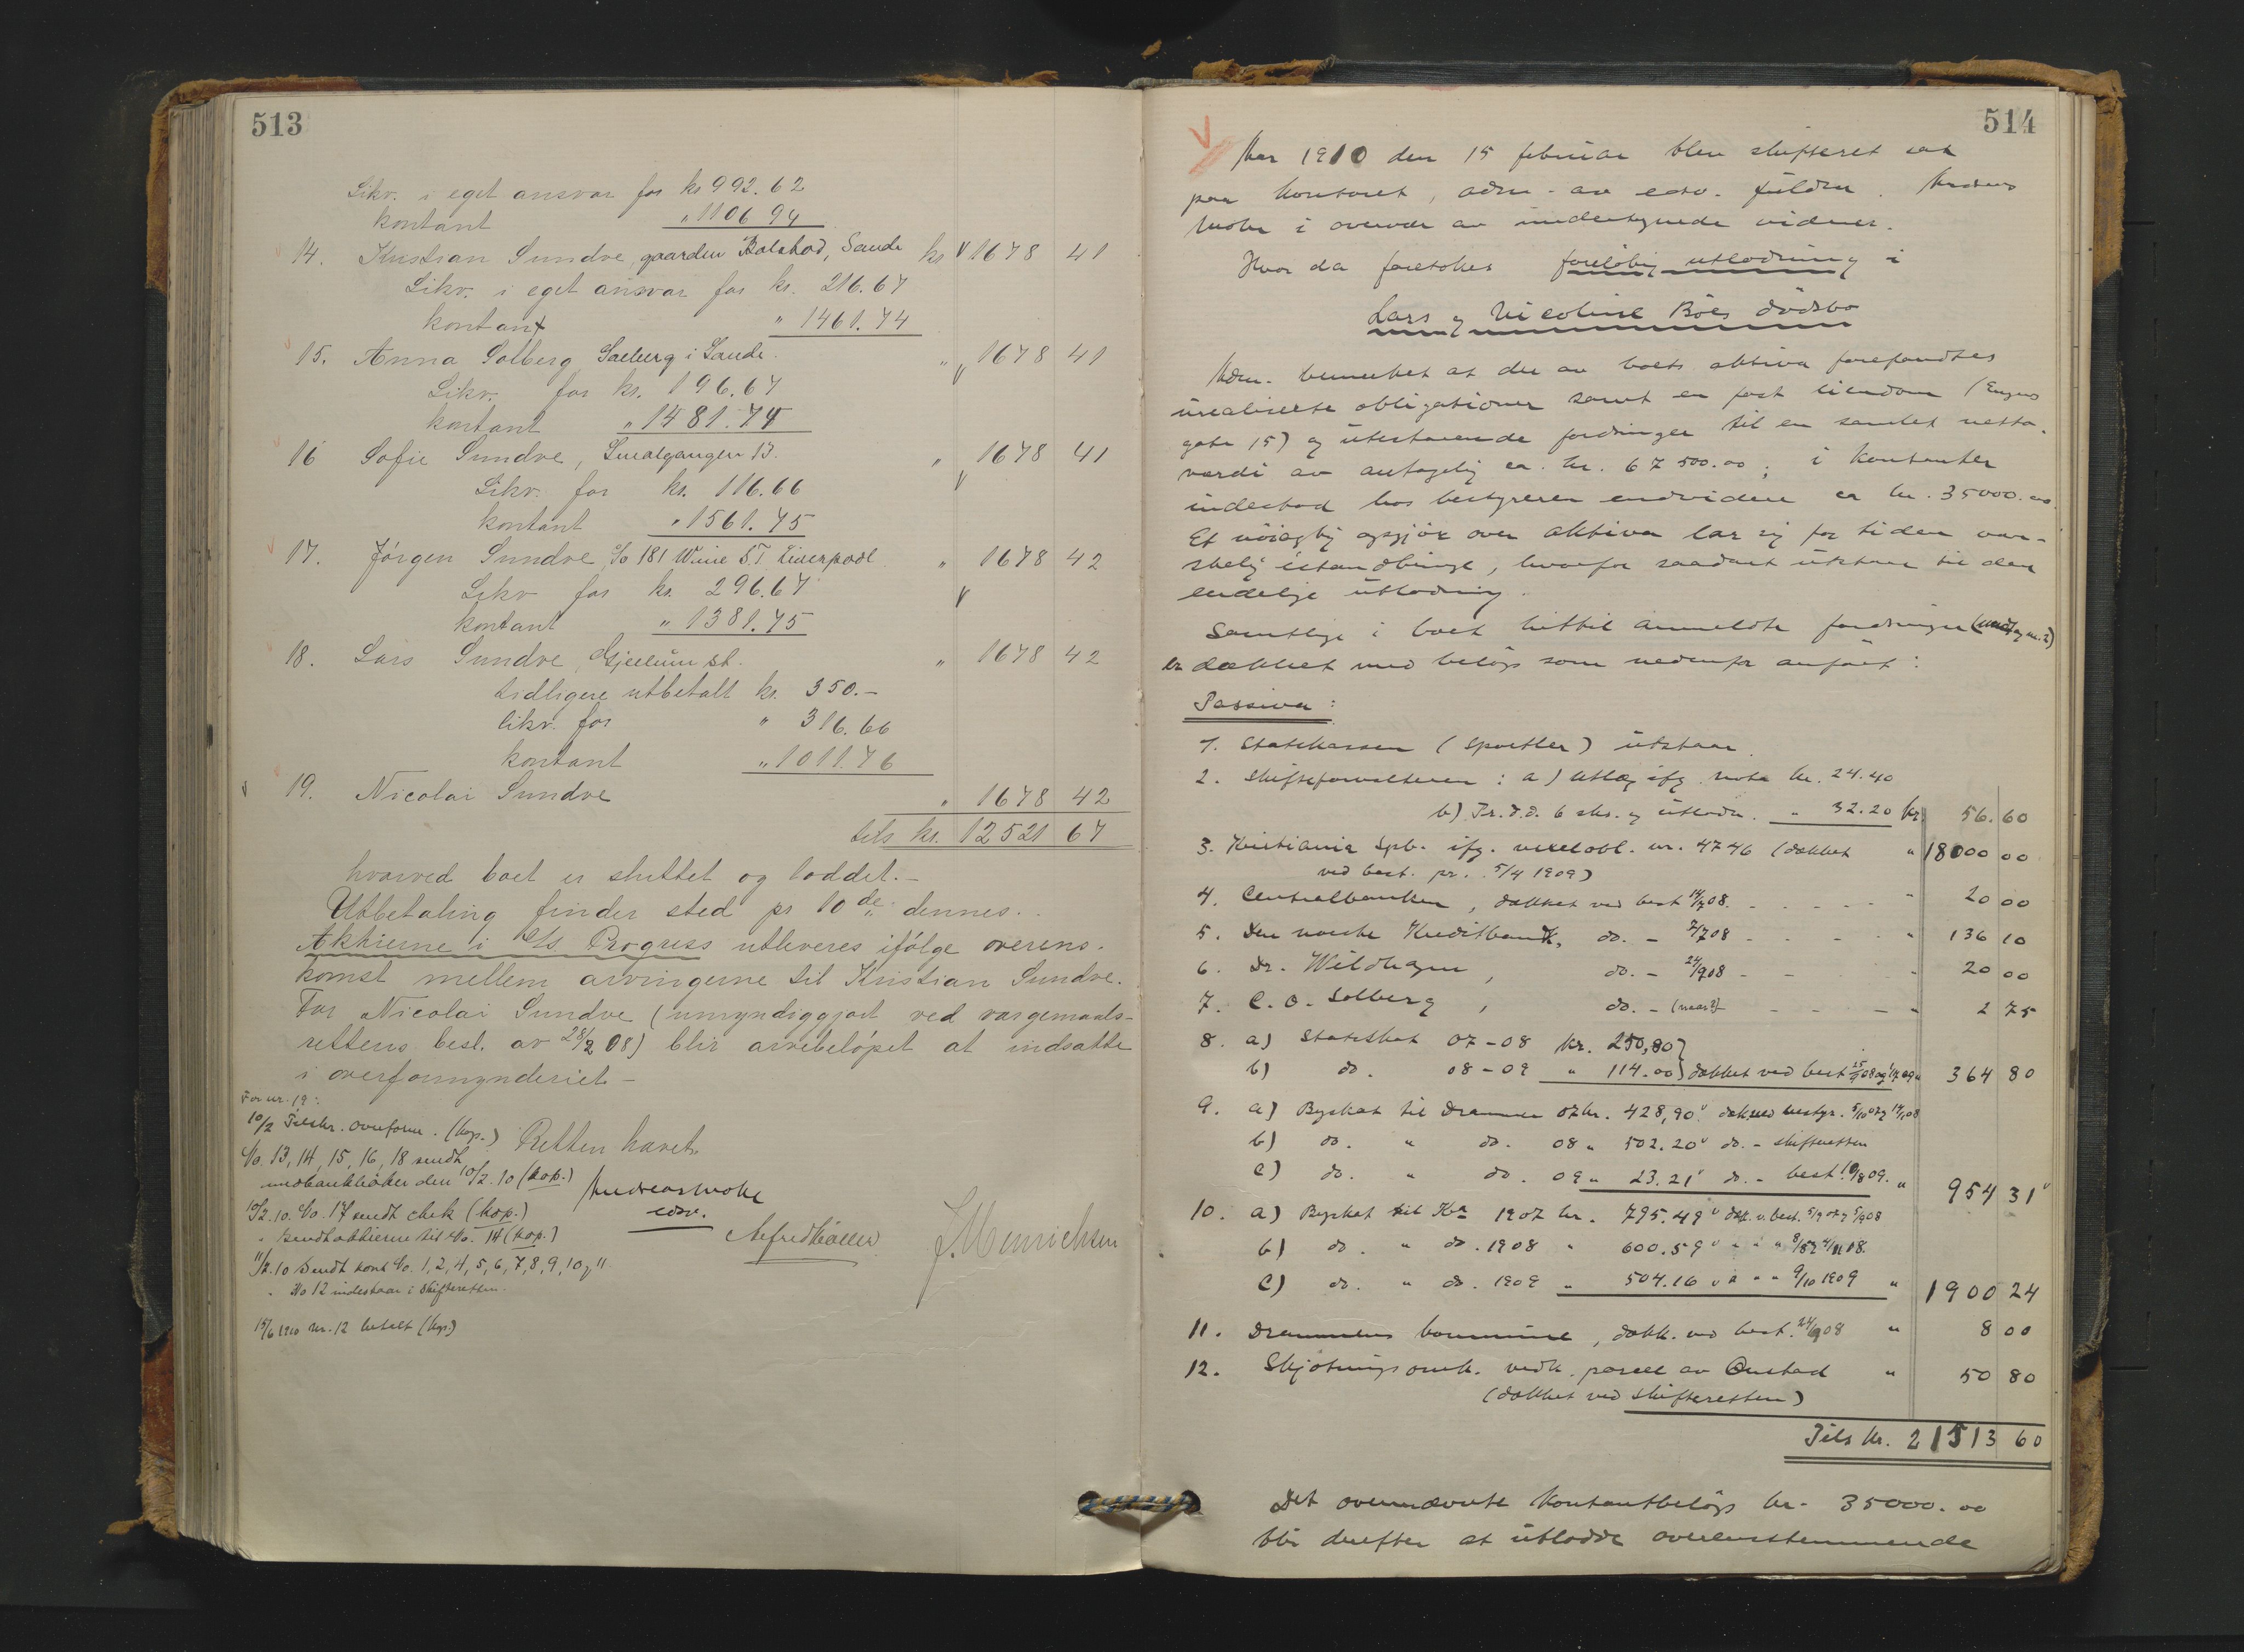 513
Likv. i eget ansvar for kr 992.62
kontant " 1106 94
14. Kristian Sundve, gaarden Bolstad, Sande kr 1678 41
Likv. i eget ansvar for kr. 216.67
kontant " 1461.74
15. Anna Solberg Solberg i Sande. " 1678 41
Likv. for kr. 196.67
kontant " 1481.74
16 Sofie Sundve, Smalgangen 13. " 1678 41
Likv. for kr. 116.66
kontant " 1561.75
17. Jørgen Sundve, c/o 181 St. Liverpool " 1678 42
Likv for kr. 296.67
kontant " 1381.75
18. Lars Sundve, Gjellum st. " 1678 42
tidligere utbetalt kr. 350.-
likv. for " 316.66
kontant " 1011.76
19. Nicolai Sundve " 1678 42
tils kr. 12521 67
hvorved boet er sluttet og loddet.-
Utbetaling finder sted pr 10de dennes.
Aktierne i A/s Progress utleveres ifølge overens-
komst mellem arvingerne til Kristian Sundve.
For Nicolai Sundve (umyndiggjort ved vergemaals-
rettens besl. av 28/2 08) blir arvebeløpet at indsætte
i overformynderiet -
For nr. 19:
10/2 Tilskr. overform. (kop.) Retten hævet.
No. 13, 14, 15, 16, 18 sendt
med bankbøker den 10/2.10 (kop.)
10/2.10. No. 17 sendt chek (kop.)
" sendt aktierne til No. 14 (kop.)
11/2.10 sendt kont No. 1, 2, 4, 5, 6, 7, 8, 9, 10 og 11
" No 12 indestaar i Skifteretten.
15/6 1910 nr. 12 betalt (kop.)
Andreas Mohr
edsv.
Alfred Møller J. Henrichsen
514
Aar 1910 den 15 februar blev skifteret sat
paa kontoret, adm. av edsv. fuldm. Andreas
Mohr i overvær av undertegnede vidner.
Hvor da foretokes foreløbig utlodning i
Lars og Nicoline Bøes dødsbo
Adm. bemerket at der av boets aktiva forefandtes
urealiserte obligationer samt en fast eiendom (Engens
gate 15) og utestaaende fordringer til en samlet netto-
værdi av antagelig ca. kr. 67 500.00; i kontanter
indestod hos bestyreren endvidere ca kr. 35000.00
Et nøiagtig opgjør over aktiva lar sig for tiden van-
skelig istandbringe, hvorfor saadant utstaar til den
endelige utlodning.
Samtlige i boet hittil anmeldte fordringer (undtag nr. 2)
er dækket med beløp som nedenfor anført:
Passiva:
1. Statskassen (Sportler) utstaar.
2. Skifteforvalteren: a) Utlæg ifg. nota kr. 24.40
b) Pr. d.d. 6 eks. og utlodn. " 32.20 kr. 56.60
3. Kristiania Spb. ifg. vexelobl. nr. 4746 (dækket " 18000 00
ved best. pr. 5/4 1909)
4. Centralbanken, dækket ved best 14/7 08. " 20 00
5. Den norske Kreditbank, do. - 2/7 08 - " 136 10
6. Dr. Wildhagen, do. - 24/9 08 - " 20 00
7. C. O. Solberg, do. - (naar?) - " 2 75
8. a) Statsskat 07-08 kr. 250,80
b) do. 08-09 " 114.00 dækket ved best 25/9 08 og 09 " 364 80
9. a) Byskat til Drammen 07 kr. 428,90 dæk. ved bestyr. 5/10 07 og 14/1 08
b) do. " do. 08 " 502.20 do. - skifteretten
c) do. " do. 09 " 23.21 do. - best. 10/8 09. " 954 31
10. a) Byskat til Kra 1907 kr. 795.49 dæk. v. best. 5/9 07 og 5/9 08
b) do. " do. 1908 " 600.59 " " " 8/5 og 4/11 08.
c) do. " do. 1909 " 504.16 " " " 9/10 1909 " 1900 24
11. Drammens kommune, dækk. ved best. 24/9 08 " 8 00
12. Skjøtningsomk. vedk. parcel av Onstad " 50 80
(dækket ved skifteretten)
Tils kr. 21513 60
Det ovennævnte kontantbeløp kr. 35000.00
blir derefter at utlodde overensstemmende